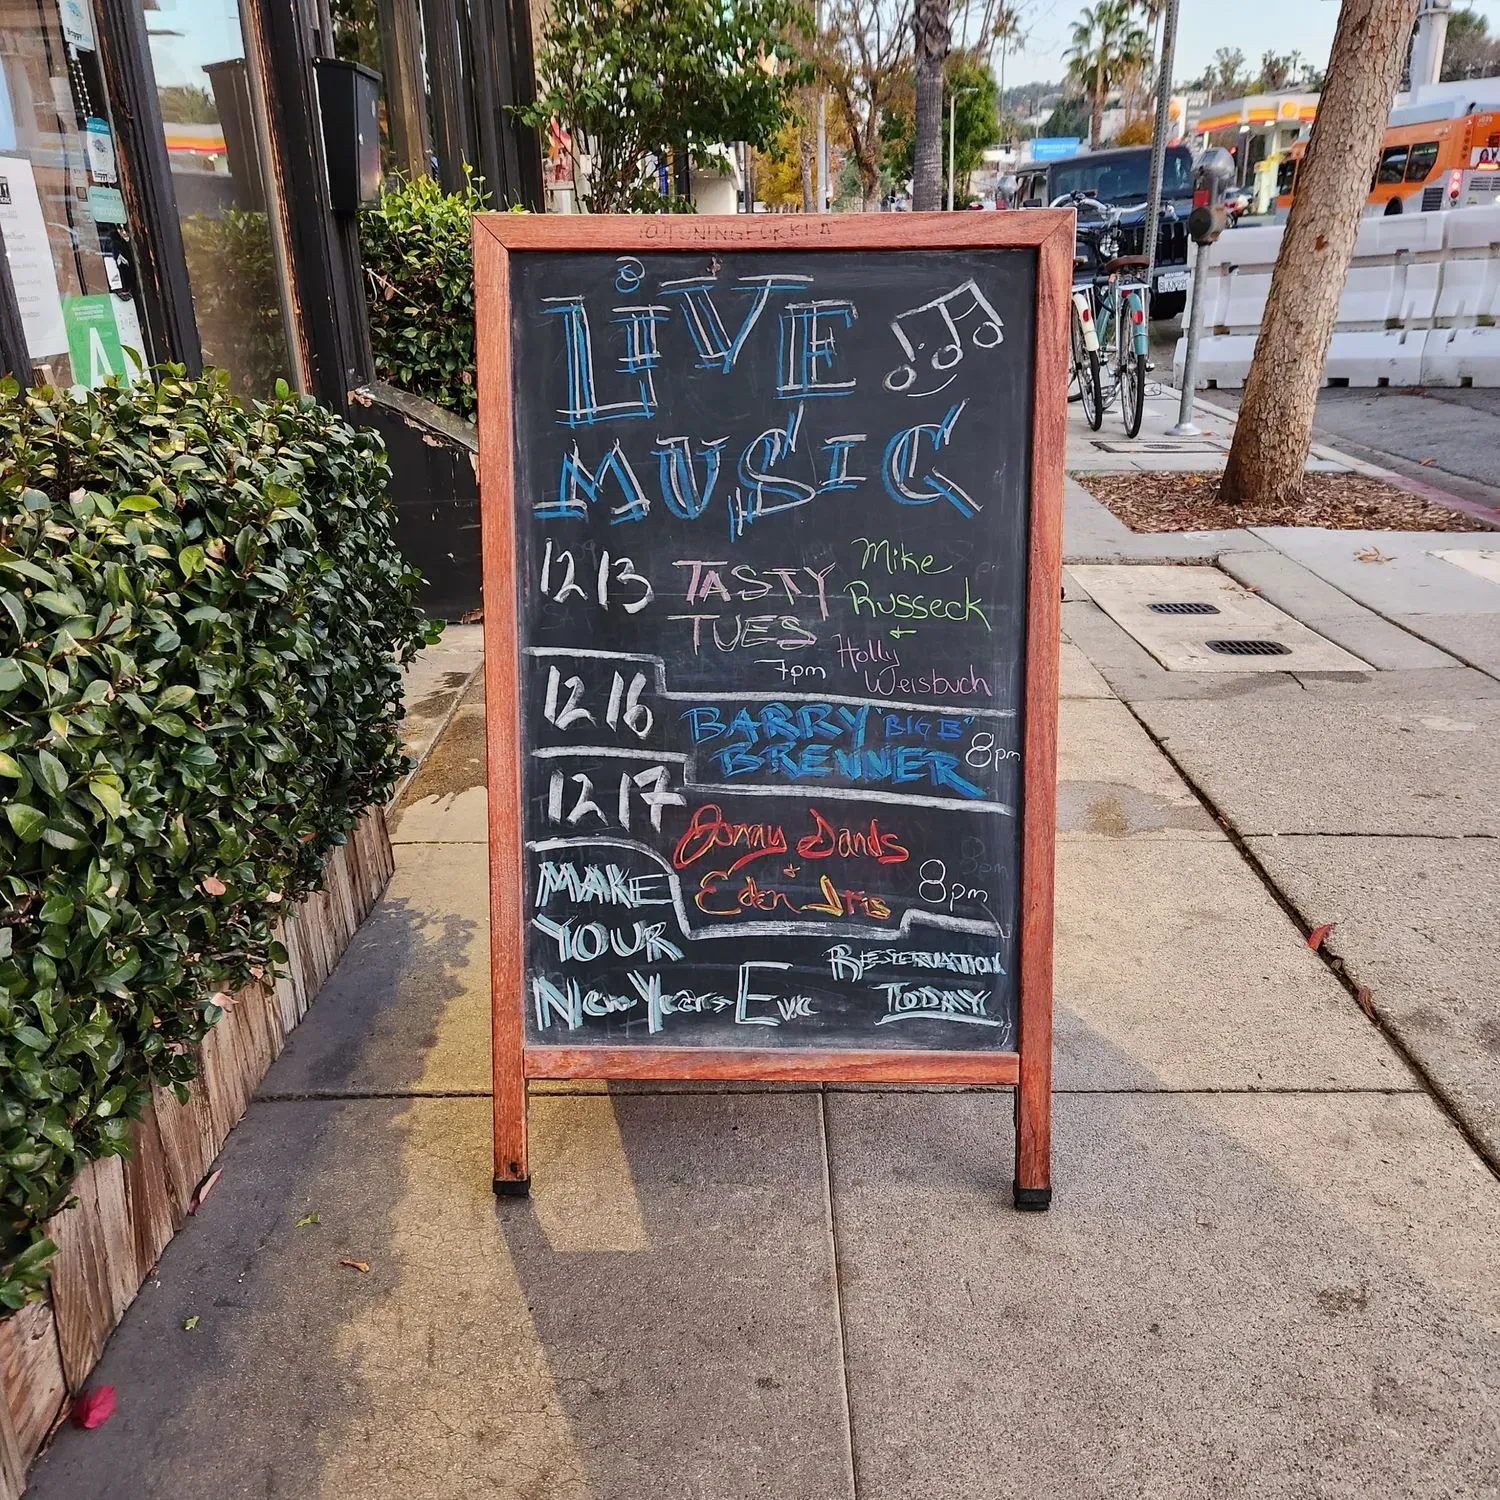 @TUNINGFORKLA
LIVE
MUSIC
12/13 TASTY TUES 7pm
Mike
Russeck
+
Holly
Weisbuch
12/16 BARRY "BIG B"
BRENNER 8pm
12/17 Jonny Dands
+
Eden Iris 8pm
MAKE
YOUR
New Years Eve
RESERVATION
TODAY
A